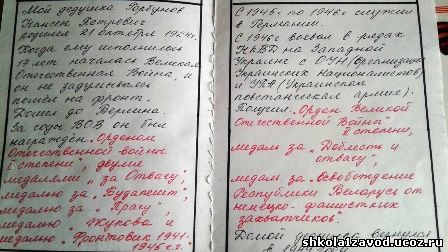 Мой дедушка Горбунов
Нансен Петрович
родился 21 октября 1924г.
Когда ему исполнилось
17 лет началась Великая
Отечественная Война, и
он не задумываясь
пошел на фронт.
Дошел до Берлина.
За годы ВОВ он был
награжден „Орденом
Отечественной войны
II степени", двумя
медалями „за Отвагу",
медалью за „Будапешт",
медалью за „Прагу",
медалью Жукова и
медалью „Фронтовик 1941-
1945 гг.
С 1945г по 1946г служил
в Германии.
С 1946г воевал в рядах
НКВД на Западной
Украине с ОУН (Организация
Украинских Националистов)
и УПА (Украинская
повстанческая армия).
Получил „Орден Великой
Отечественной Войны"
II степени,
медаль за „Доблесть и
отвагу",
медаль за „Освобождение
Республики Беларусь от
немецко-фашистских
захватчиков".
Домой дедушка вернулся
shkola1zavod.ucoz.ru